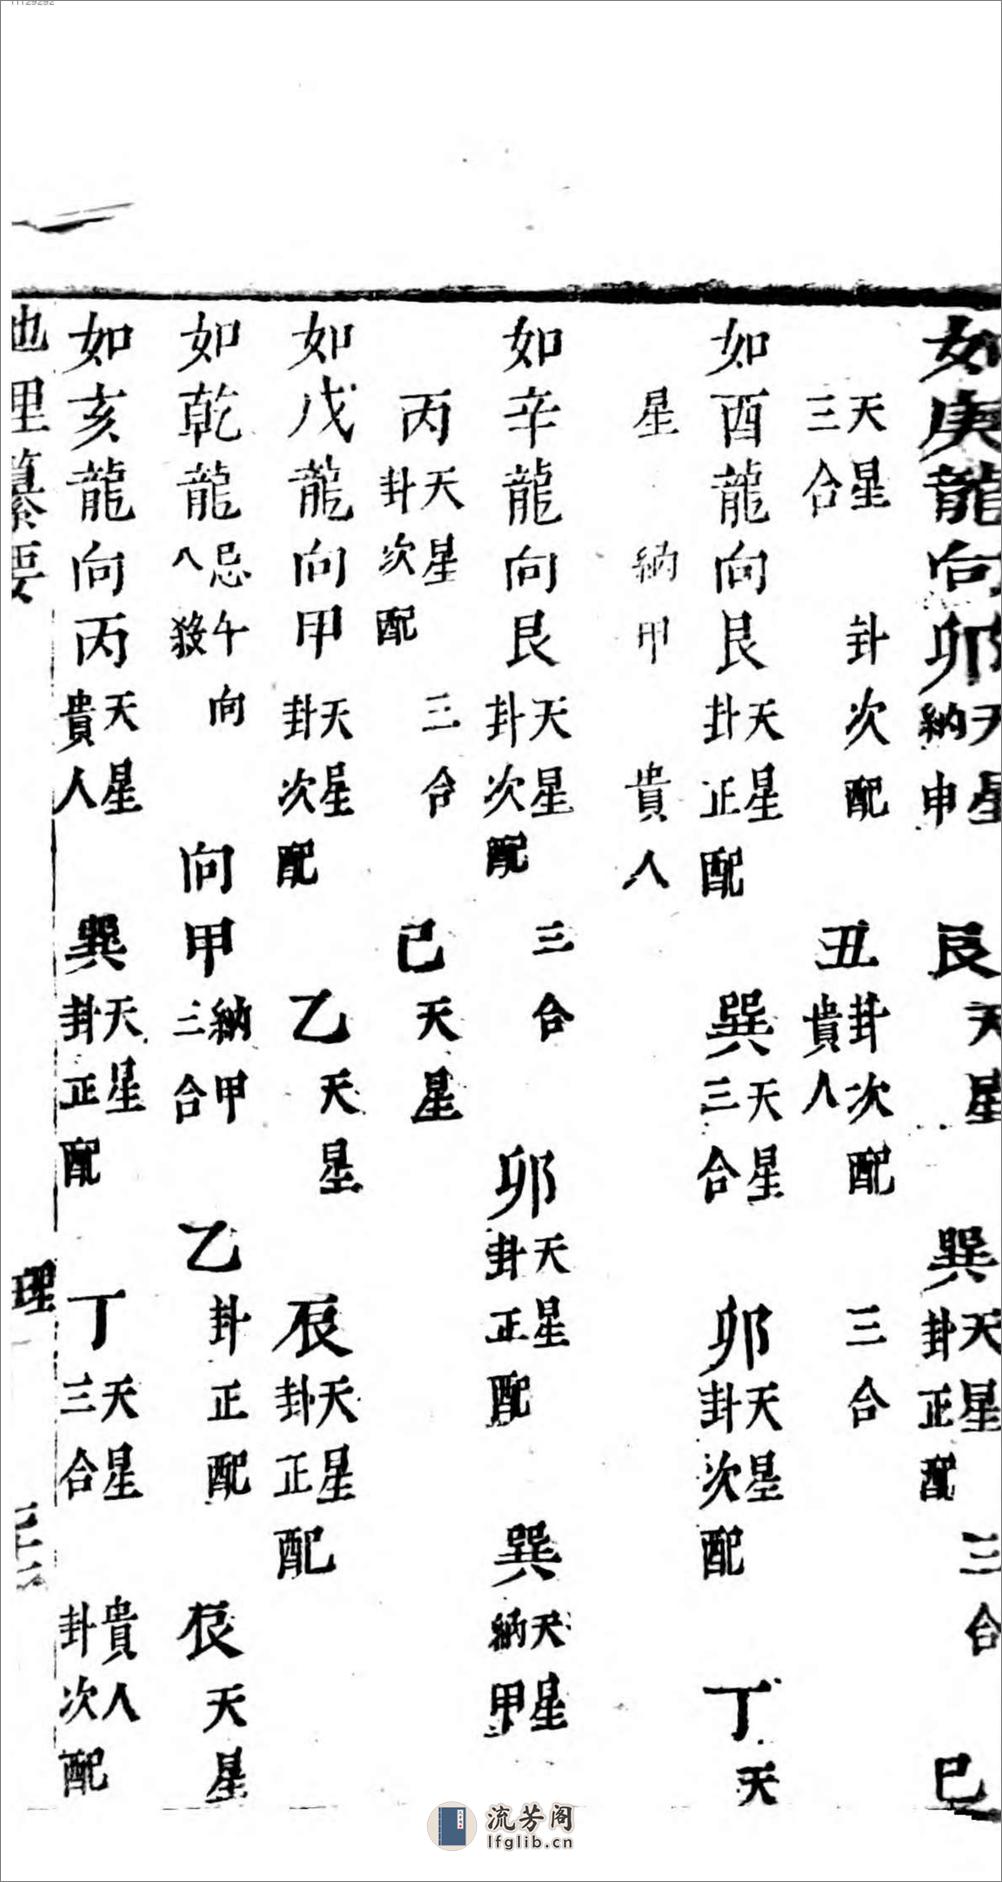 如庚龍向卯天星納申 艮天星 巽天星卦正配 三合 巳
天星三合 卦次配 丑卦次配貴人 三合
如酉龍向艮天星卦正配 巽天星三合 卯天星卦次配 丁天
星 納甲 貴人
如辛龍向艮天星卦次配 三合 卯天星卦正配 巽天星納甲
丙天星卦次配 三合 巳天星
如戊龍向甲天星卦次配 乙天星 辰天星卦正配
如乾龍忌午向八殺 向甲納甲三合 乙卦正配 辰天星
如亥龍向丙天星貴人 巽天星卦正配 丁天星三合 貴人卦次配
地理纂要 理
流芳阁
lfglib.cn